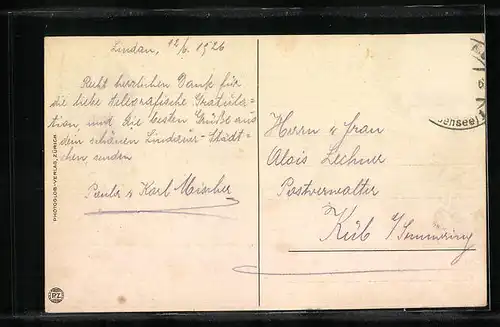 Lindau, 12/6. 1926
Recht herzlichen Dank für
die liebe telegrafische Gratula=
tion, und die besten Grüße aus
dem schönen Lindauer-Städt=
chen, senden
Paula u Karl Mischer
Herrn u Frau
Alois Lechner
Postverwalter
Küb a/Semmering
(Bodensee)
PHOTOGLOB-VERLAG, ZÜRICH
PZ